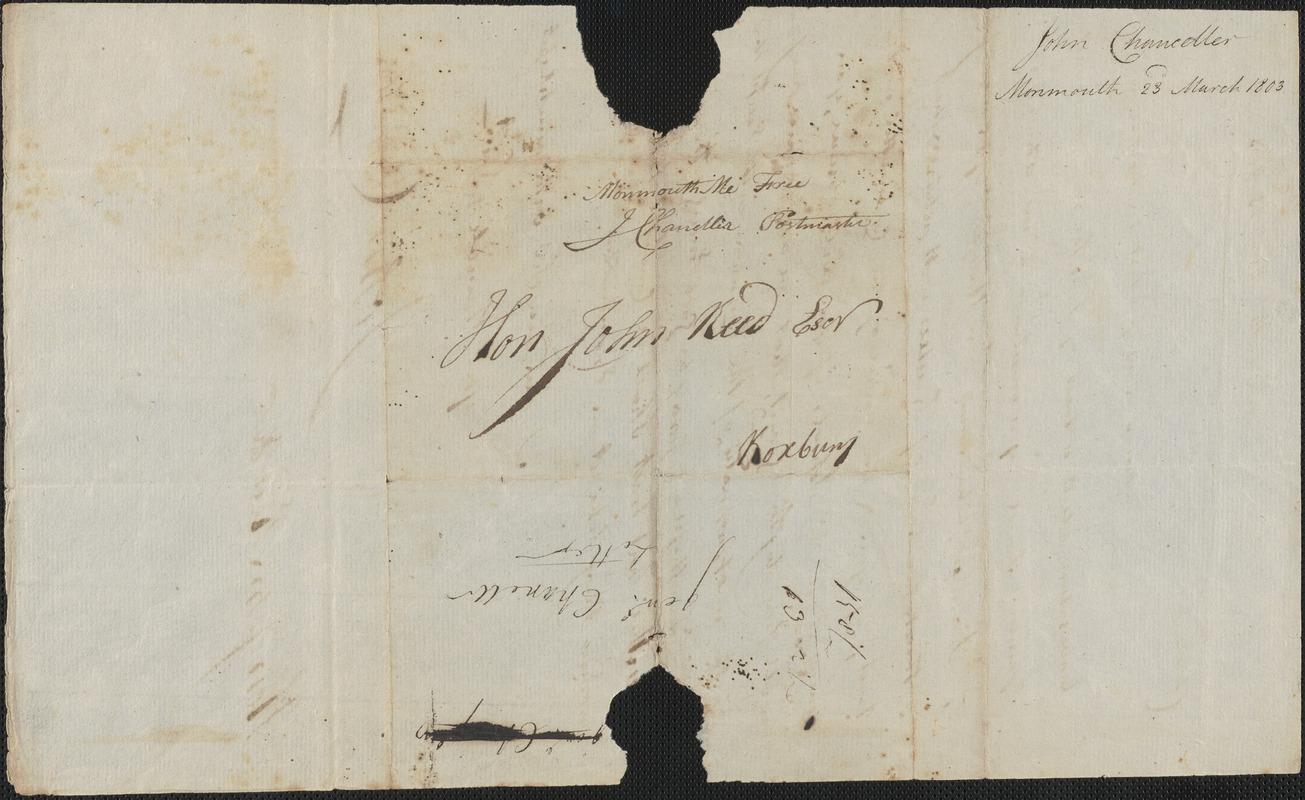 John Chandler
Monmouth 23d March 1803
Monmouth Me Free
J Chandler Postmaster
Hon John Reed Esqr
Roxbury
Genl. Chandler
Letter